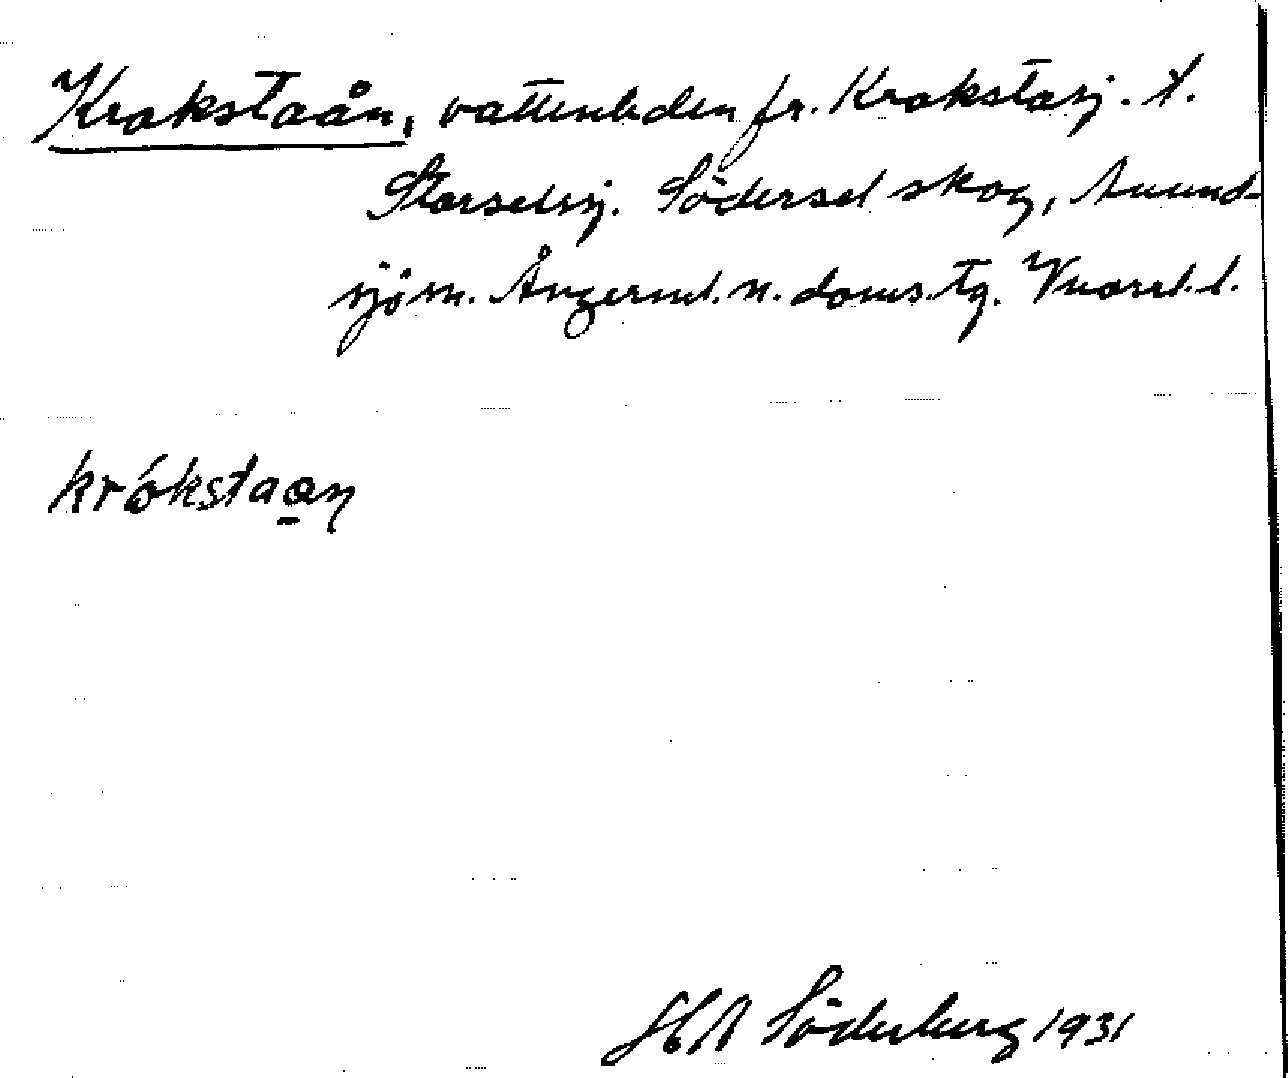 Krokstaån, vattenleden fr. Krokstasj. t.
Storselsj. Södersel skog, Anund-
sjö sn. Ångerml. n. doms. tg. Vnorrl. l.
krókstaan
HA Söderberg 1931